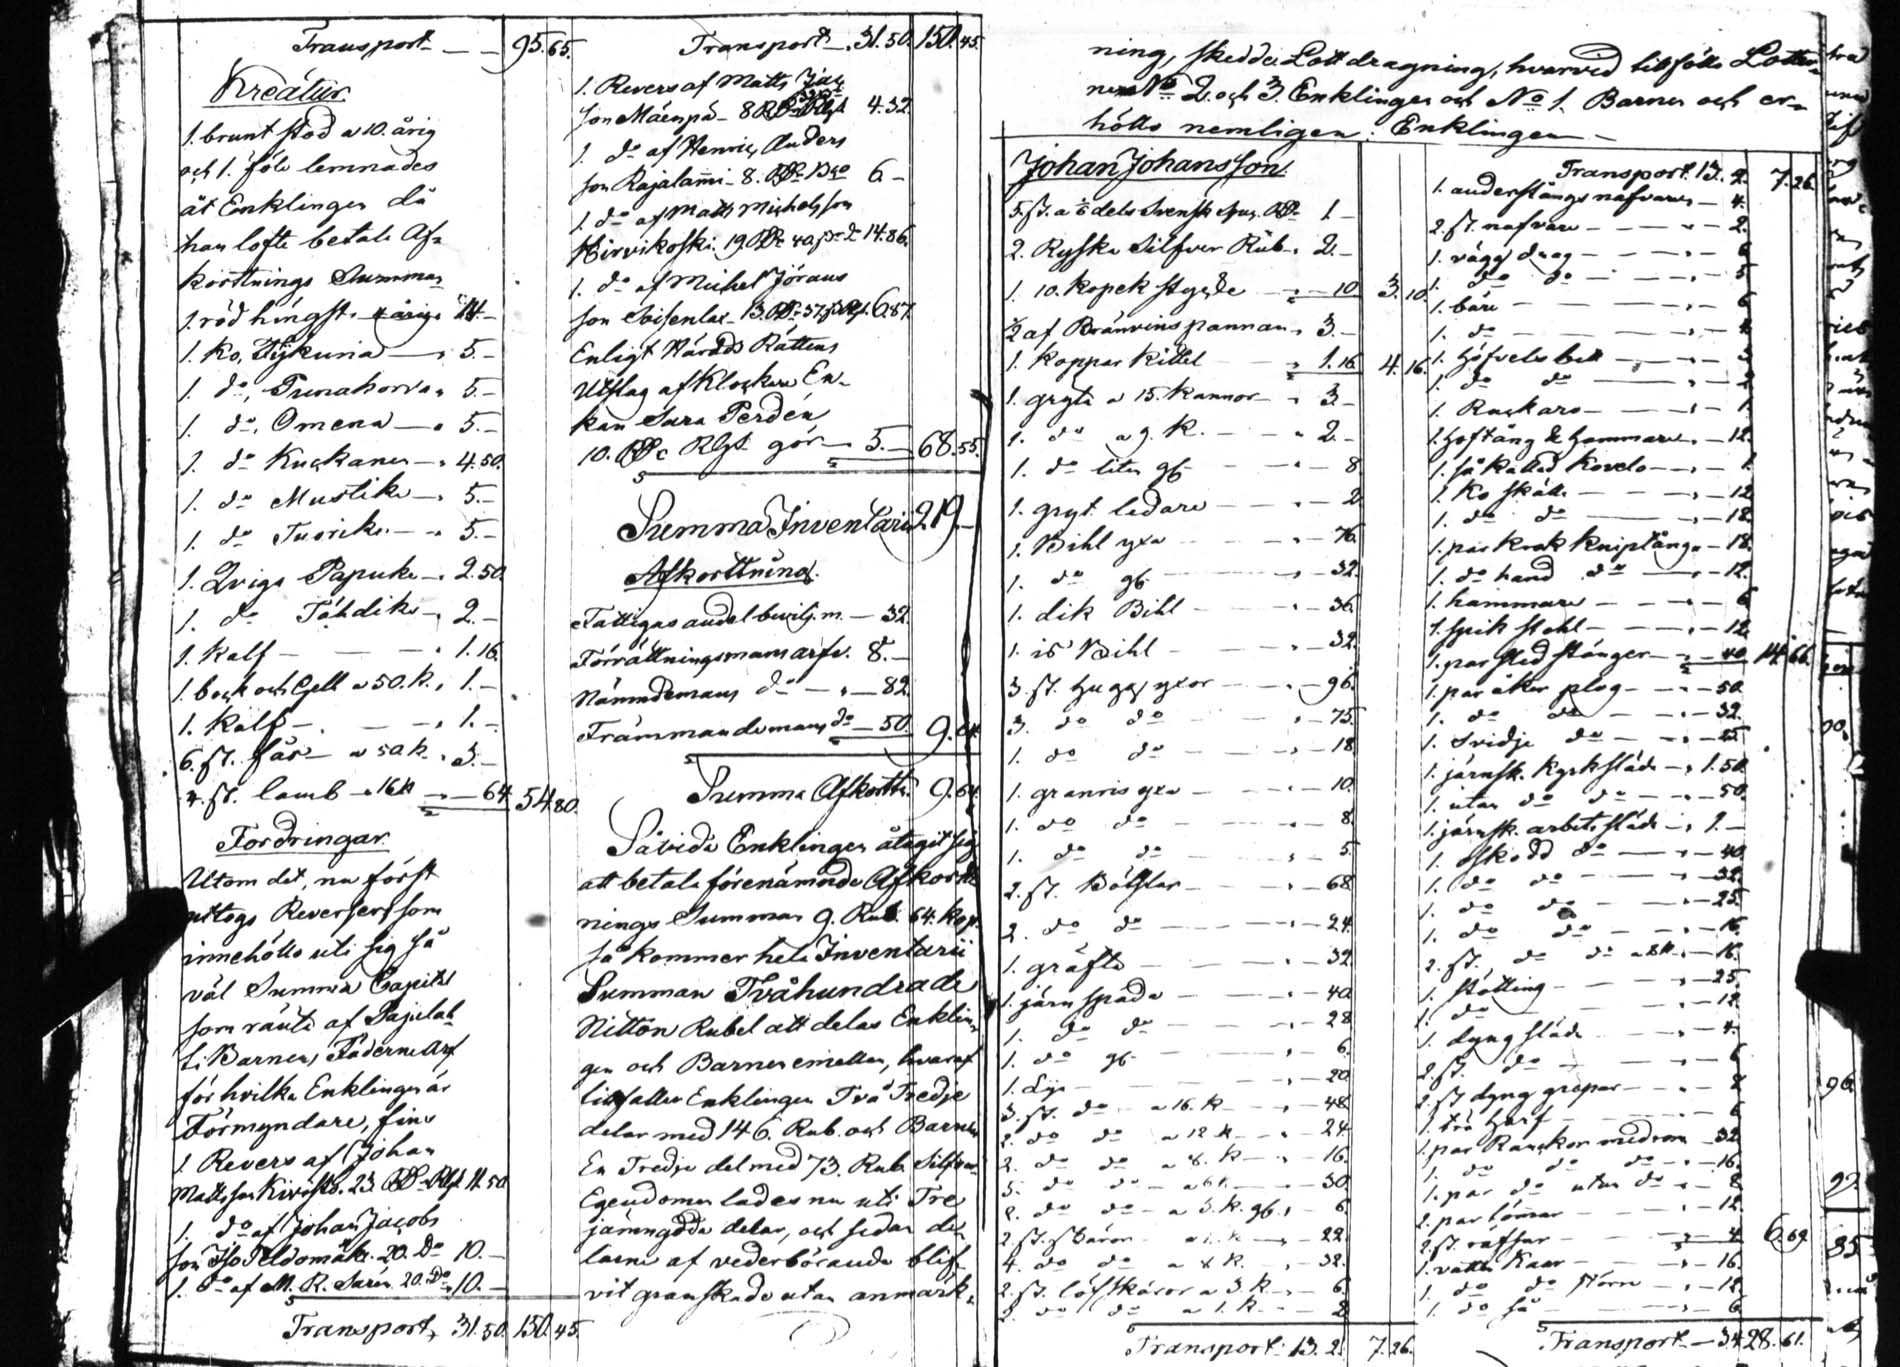 Transport — — 95.65.
Kreatur.
1. brunt stod a 10. årig
och 1. föle lemnades
åt Enklingen då
han lofte betala Af-
kortnings Summan
1. röd hingst 14.—
1. Ko, Tÿkuna — " 5.—
1. do, Punakorva " 5.—
1. do, Omena — " 5.—
1. do Kuckanen — " 4.50.
1. do Mustike — " 5.—
1. do Tuorike — " 5.—
1. Qviga Papuke — " 2.50.
1. do Tähdike " 2.—
1. Kalf — — " 1.16.
1. bock och Gell a 50. k. " 1.—
1. Kalf — — " 1.—
6. st. får — a 50 k. " 3.—
4. st. lamb — a 16 k — — 64. 54.80.
Fordringar.
Utom det, nu först
uptogs Reverser som
innehölls uti sig så
väl Summa Capital
som ränta af
Barnens Fäderne Arf
för hvilka Enklingen är
Förmyndare, fins
1. Revers af Johan
Mattsson 23. 11.50
1. do af Johan Jacobs
son 20. Do 10.—
1. do af M. R. Sarin 20. Do 10.—
Transport, 31.50. 150.45.
Transport — 31.50. 150.45.
1. Revers af Matts Jac
son Mäenpä — 8 4.32.
1. do af Henric Anders
son Rajalami — 8. 6.—
1. do af Matts Michelsson
Hirvikoski. 19 14.86.
1. do af Michel Jörans
son 13. 6.87.
Enligt Härads Rättens
Utslag af Klockare En-
kan Sara Perdén
10. Rgt. gör — 5.— 68.55.
Summa Inventarii 219.—
Afkorttning.
Fattigas andel bevilj. m. — 32.
Förrättningsmans arfv. 8.—
Nämndemans do — " — 82.
Främmandemans do — 50. 9.64.
Summa Afkortn. 9.64.
Såvida Enklingen åtagit sig
att betala förenämnde Afkortt
nings Summan 9. Rub. 64. kop.
så kommer hela Inventarii
Summan Tvåhundrade
Nitton Rubel att delas Enklin-
gen och Barnen emellan, hvaraf
tillfaller Enklingen Två Tredje
delar med 146. Rub. och Barnen
En Tredje del med 73. Rub. Silfver
Egendomen lades nu uti Tre
jämngoda delar, och sedan de-
larne af vederbörande blif-
vit granskade utan anmärk-
ning, skedde Lottdragning, hvarvid tillföllo Lotter-
ne No 2. och 3. Enklingen och No 1. Barnen och er-
höllo nemligen: Enklingen —
Johan Johansson.
5. st. a 1/6 dels Svensk 1 —
2. Ryska Silfver Rub. " 2.—
1. 10. kopek stycke — " — 10 3.10.
1/2 af Bränvins pannan " 3.—
1. Koppar Kittel " 1.16 4.16.
1. gryta a 15. kannor — " 3—
1. do a 9. K. — — " 2.—
1. do liten gl. — " — 8
1. gryt ledare — — " — 2
1. Bihl yxa — " — 76.
1. do gl. — " — 32.
1. dik Bihl — " — 36
1. is Bihl — " — 32.
3. st. hugg yxor — " — 96.
3. do do — " — 75.
1. do do — " — 18
1. granris yxa — " — 10.
1. do do — " — 8.
1. do do — " — 5.
2. st. — " — 68
2. do do — " — 24.
1. gräfta — " — 32.
1. järn spade — " — 40
1. do do — " — 28
1. do gl. — " — 6.
1. Lije — " — 20.
3. st. do a 16. k — " — 48.
2. do do a 12 k — " — 24.
2. do do a 8. k — " — 16.
5. do do a 6 k — " — 30
2. do do a 3. k. gl. " — 6.
2. st. skäror — " — 22.
4. do do a 8 k. — " — 32.
2. st. löfskäror a 3. k. — 6.
2. do do a 1. k. — 2
Transport 13.2. 7.26.
Transport. 13.2. 7.26.
1. anderstångs nafvare — 4.
2. st. nafvare — " — 2.
1. vägg — " — 6
1. do do — " — 5
1. båre — " — 6
1. do — " — 4
1. höfvelsbett — " — 3
1. do do — " — 2
1. — " — 1.
1. hoftång & hammare — " — 12.
1. så kallad Kovelo — " — 1.
1. Ko skälla — " — 12
1. do do — " — 18.
1. par Krok Kniptänger — 18.
1. do hand do — " — 12.
1. hammare — " — 6
1. spik stahl — " — 12
1. par sled stänger — " — 40 14.66.
1. par åker plog — " — 50
1. do do — " — 32.
1. Svidje do — " — 25.
1. järnsk. kyrkslåde — " 1.50
1. utan do do — " — 50.
1. järnsk. arbetsslåde — " 1.—
1. oskodd do — " — 40
1. do do — " — 32.
1. do do — " — 25.
1. do do — " — 16.
2. st. do do a 8 k — " — 16.
1. stötting — " — 25.
1. do — " — 12.
1. dyng släde — " — 4.
2. st. do — " — 6
2. st. dyng grepar — " — 8
1. trä harf — " — 6
1. par Ranckor med rom — 32
1. do do do — " — 16.
1. par do utan do — " — 8
2. par lömar — " — 12.
2. st. räfsar — " — 4 6.69
1. vatt Kaar — " — 16.
1. do do större — " — 12.
1. do så — " — 6
Transport — 34 28.61.